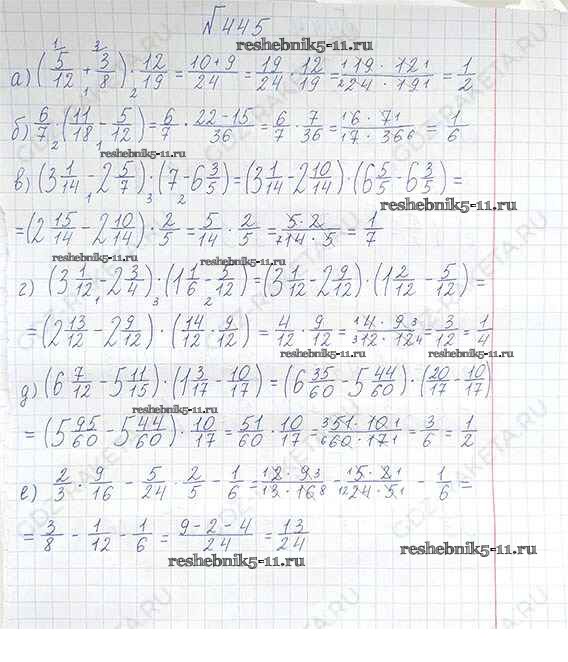 №445
reshebnik5-11.ru
а) (5/12 + 3/8) · 12/19 = 10+9/24 = 19/24 · 12/19 = 19 · 12/24 · 19 = 1/2
б) 6/7 · (11/18 - 5/12) = 6/7 · 22-15/36 = 6/7 · 7/36 = 6 · 7/7 · 36 = 1/6
reshebnik5-11.ru
в) (3 1/14 - 2 5/7) · (7 - 6 3/5) = (3 1/14 - 2 10/14) · (6 5/5 - 6 3/5) =
reshebnik5-11.ru
= (2 15/14 - 2 10/14) · 2/5 = 5/14 · 2/5 = 5 · 2/14 · 5 = 1/7
reshebnik5-11.ru
г) (3 1/12 - 2 3/4) · (1 1/6 - 5/12) = (3 1/12 - 2 9/12) · (1 2/12 - 5/12) =
= (2 13/12 - 2 9/12) · (14/12 · 9/12) = 4/12 · 9/12 = 4 · 9/12 · 12 = 3/12 = 1/4
reshebnik5-11.ru
д) (6 7/12 - 5 11/15) · (1 3/17 - 10/17) = (6 35/60 - 5 44/60) · (20/17 - 10/17)
reshebnik5-11.ru
= (5 95/60 - 5 44/60) · 10/17 = 51/60 · 10/17 = 51 · 10/60 · 17 = 3/6 = 1/2
reshebnik5-11.ru
е) 2/3 · 9/16 - 5/24 · 2/5 - 1/6 = 2 · 9/3 · 16 - 5 · 2/24 · 5 - 1/6 =
= 3/8 - 1/12 - 1/6 = 9-2-4/24 = 13/24
reshebnik5-11.ru
reshebnik5-11.ru
GDZ-RAKETA.RU